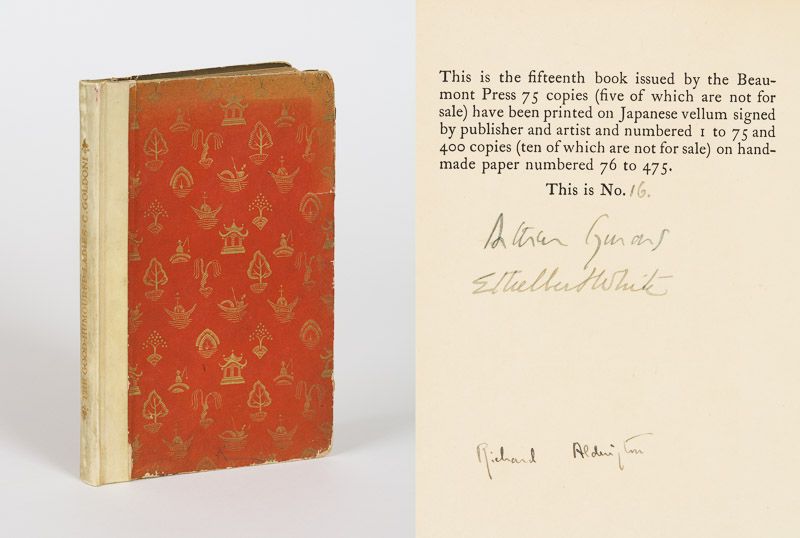 THE GOOD-HUMOURED LADIES-C. GOLDONI
This is the fifteenth book issued by the Beau-
mont Press 75 copies (five of which are not for
sale) have been printed on Japanese vellum signed
by publisher and artist and numbered 1 to 75 and
400 copies (ten of which are not for sale) on hand-
made paper numbered 76 to 475.
This is No. 16.
Arthur Symons
Ethelbert White
Richard Aldington